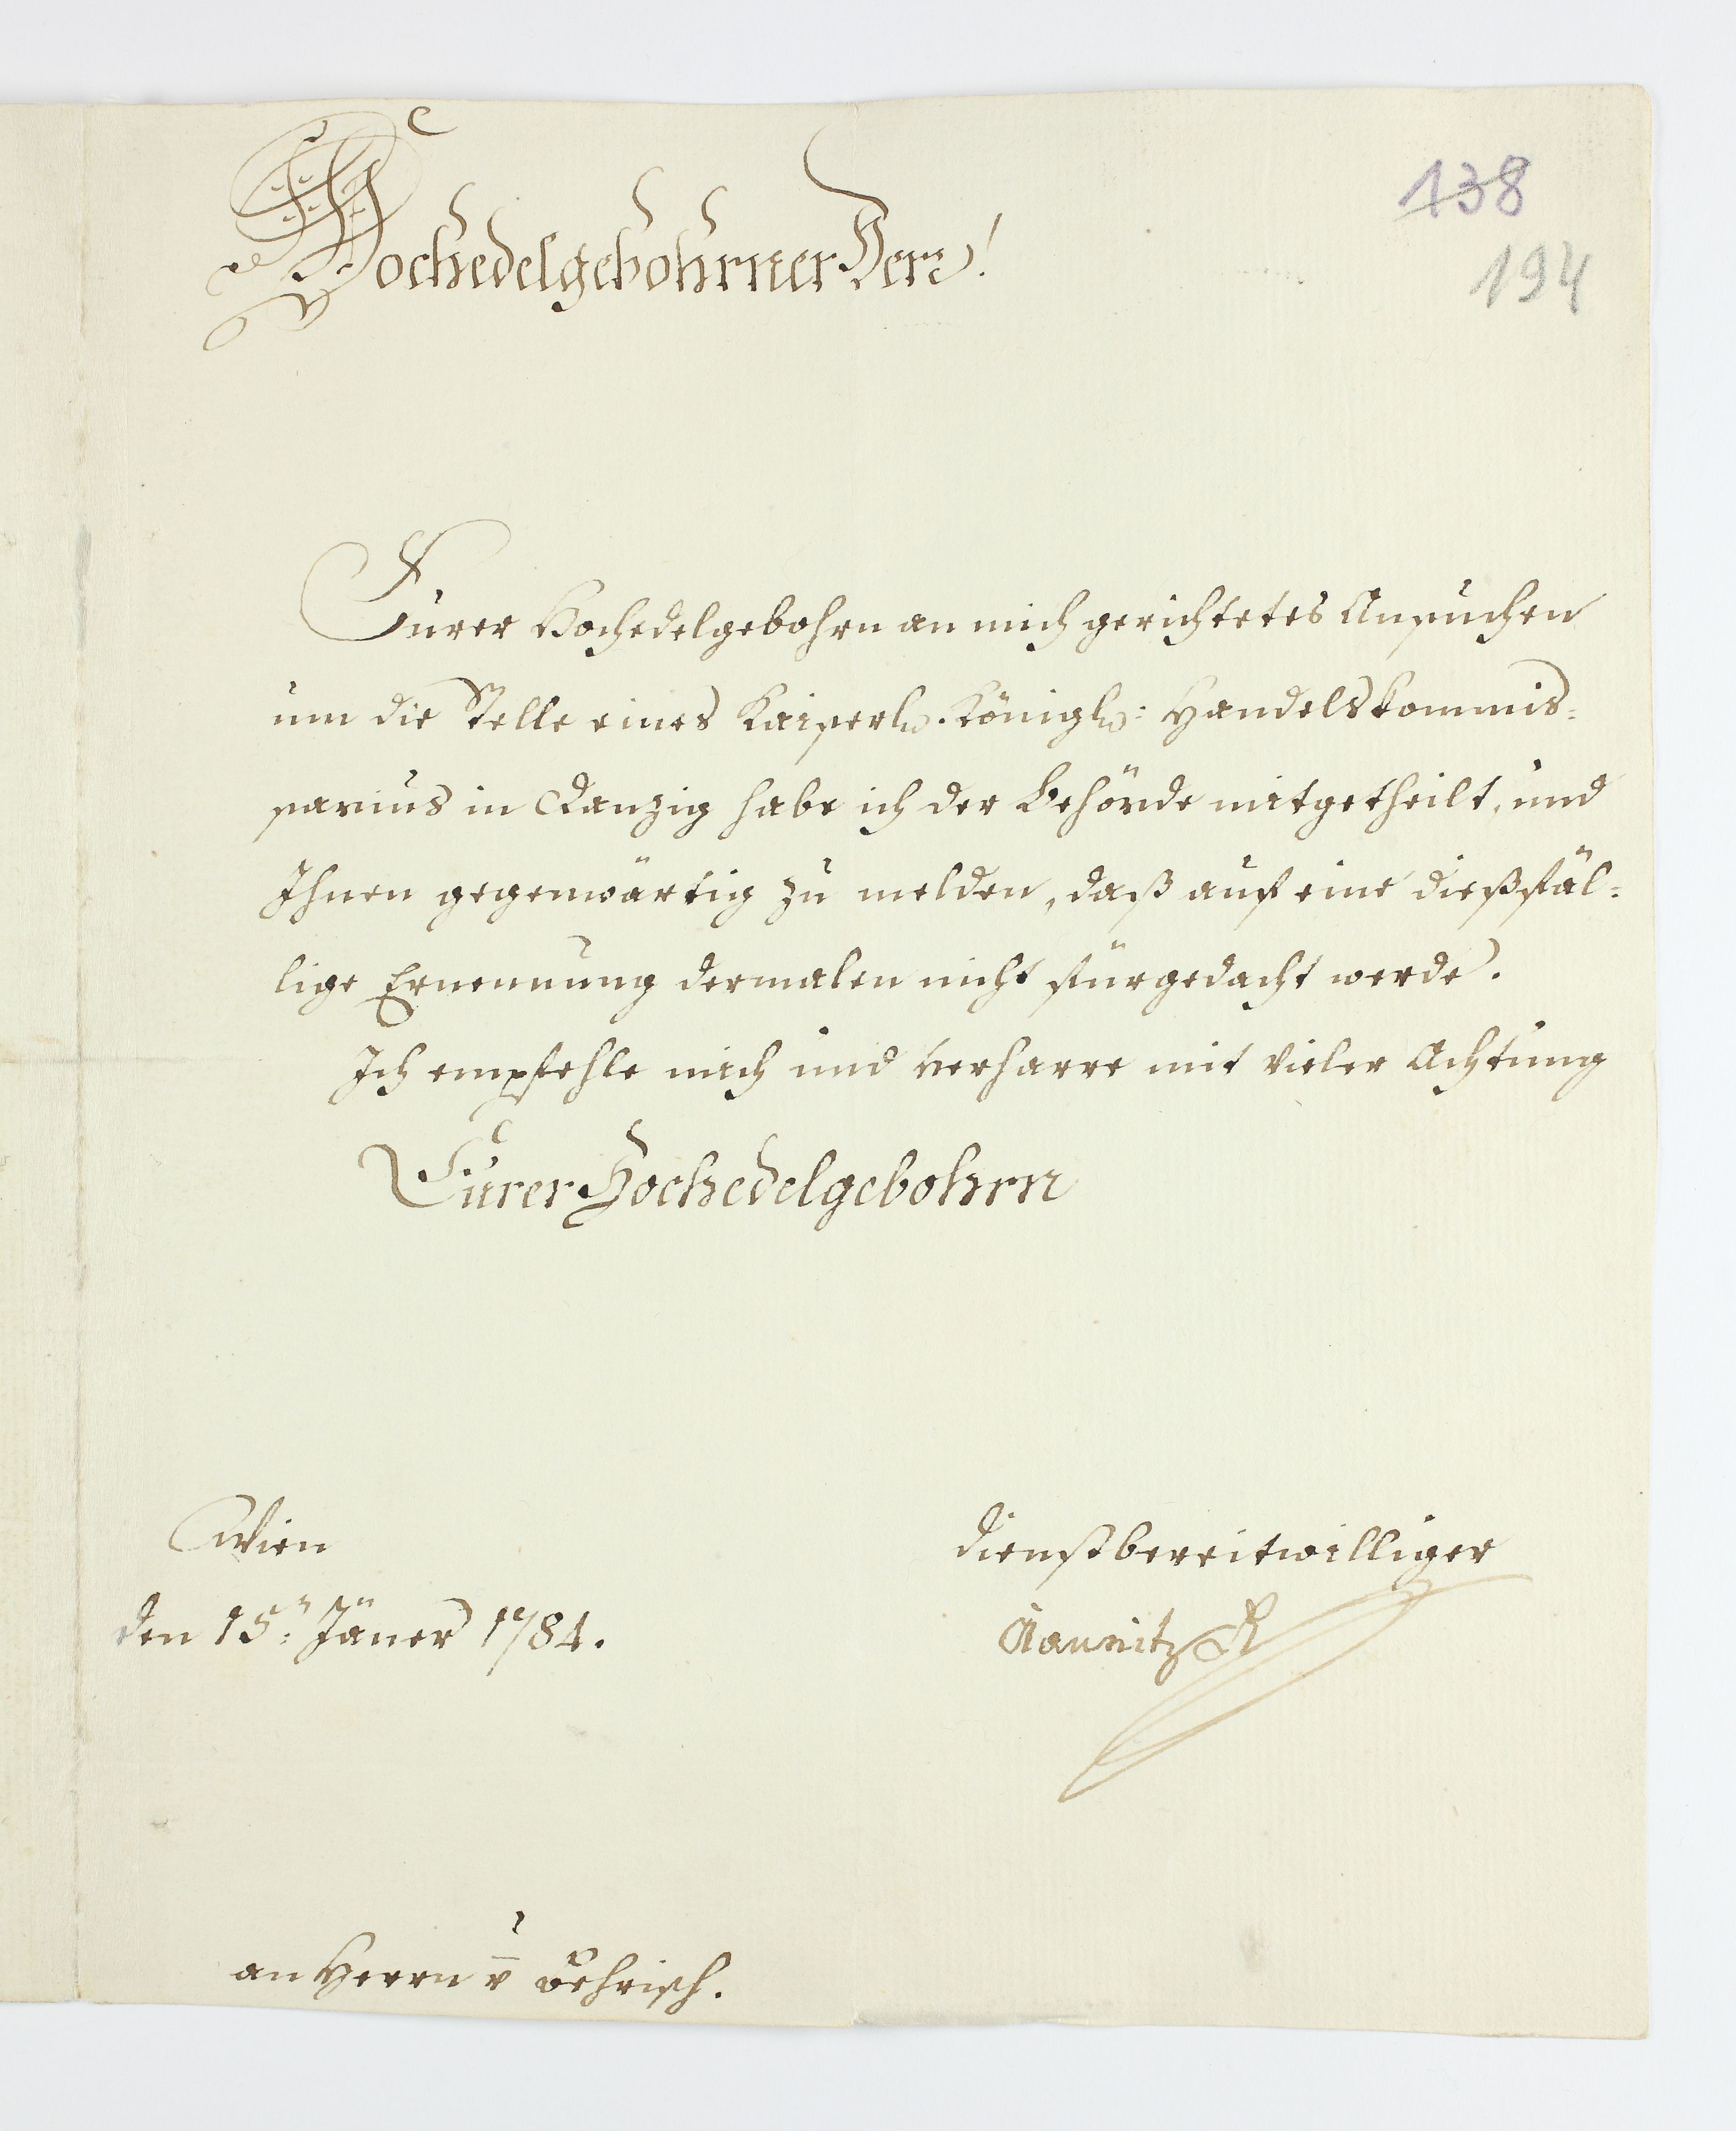 138
194
Hochedelgebohrner Herr!
Eurer Hochedelgebohrn an mich gerichtetes Ansuchen
um die Stelle eines Kaiserl. Königl: Handelskommis=
sarius in Danzig habe ich der Behörde mitgetheilt, und
Ihnen gegenwärtig zu melden, daß auf eine dießfäl=
lige Ernennung dermalen nicht fürgedacht werde.
Ich empfehle mich und verharre mit vieler Achtung
Eurer Hochedelgebohrn
Wien
den 15: Jäner 1784.
dienstbereitwilliger
Kaunitz R
an Herrn v